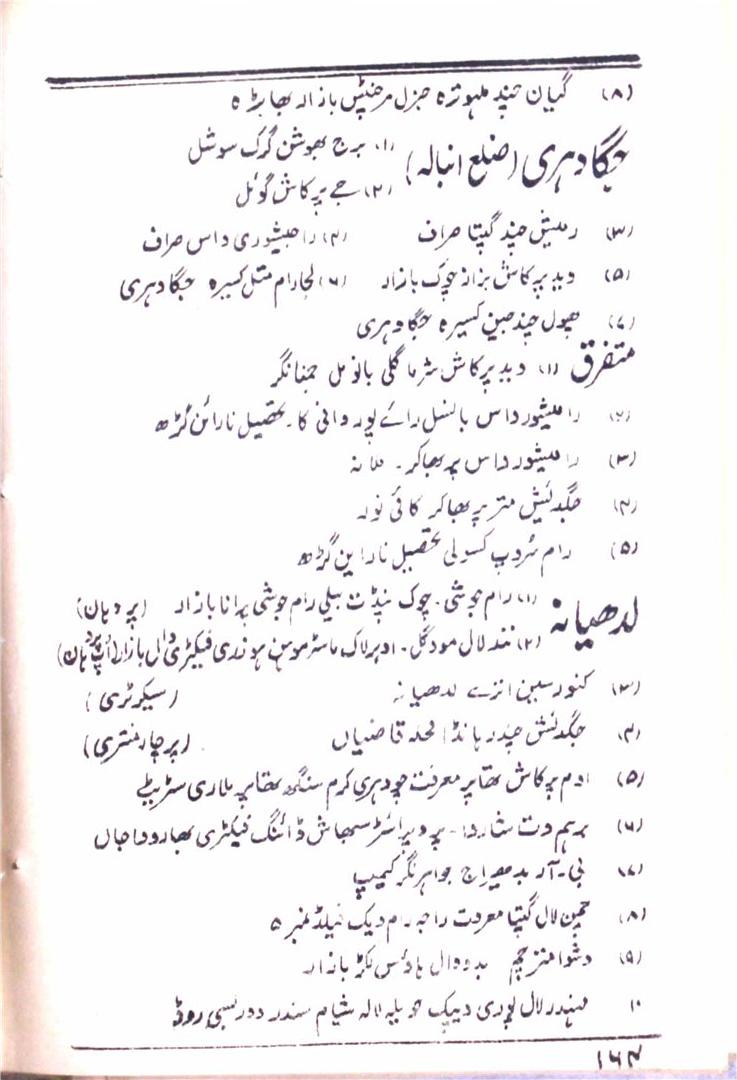 (۸) گیان چند ملہوترہ جنرل مرچنٹس بازار بھابڑہ
جگادہری (ضلع انبالہ) (۱) برج بھوشن گرگ سوشل
(۲) جے پرکاش گوئل
(۳) رمیش چند گپتا صراف (۴) رامیشوری داس صراف
(۵) وید پرکاش بزاز چوک بازار (۶) لجارام متل کسیرہ جگادہری
(۷) پھول چند جین کسیرہ جگادہری
متفرق (۱) وید پرکاش شرما گلی بانومل جمنانگر
(۲) رامیشور داس بانسل رائے پور رانی کا۔ تحصیل نارائن گڑھ
(۳) رامیشور داس پربھاکر۔ ملانہ
(۴) جگدیش متر پربھاکر کائی نور
(۵) رام سروپ کسولی تحصیل نارائن گڑھ
لدھیانہ (۱) رام جوشی۔ چوک پنڈت بیلی رام جوشی پرانا بازار (پردہان)
(۲) نند لال مودگل۔ اوہرلاک ماسٹر موہن ہوزری فیکٹری وال بازار (اُپ پردہان)
(۳) کنور سین انرے لدھیانہ (سیکرٹری)
(۴) جگدیش چندر پانڈا محلہ قاضیاں (پرچار منتری)
(۵) اوم پرکاش تھاپر معرفت چوہدری کرم سنگھ تھاپر ملاری سٹریٹ
(۶) برہم دت شاردا۔ پروپرائٹر سبھاش ڈائنگ فیکٹری
(۷) بی۔ آر بدھیراج جواہر نگر کیمپ
(۸) چمن لال گپتا معرفت راجہ رام دیک فیلڈ نمبر ۵
(۹) وشوامتر جی بدووال ہاؤس نکڑ بازار
۱۰ مہندر لال پوری دیپک حویلہ لالہ شیام سندر روڈ
۱۶۴